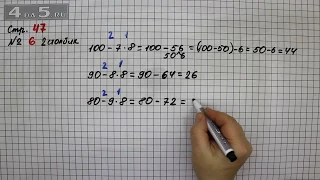 4DA5.RU
Стр. 47
№ 6 2 столбик
2 1
100 - 7 · 8 = 100 - 56 = (100-50)-6 = 50-6 = 44
50 6
2 1
90 - 8 · 8 = 90 - 64 = 26
2 1
80 - 9 · 8 = 80 - 72 =